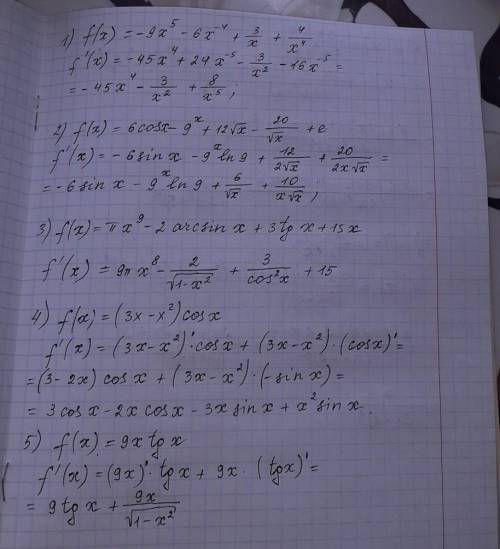 1) f(x) = -9x⁵ - 6x⁻⁴ + 3/x + 4/x⁴
f'(x) = -45x⁴ + 24x⁻⁵ - 3/x² - 16x⁻⁵ =
= -45x⁴ - 3/x² + 8/x⁵ ;
2) f(x) = 6cosx - 9ˣ + 12√x - 20/√x + e
f'(x) = -6sin x - 9ˣ ln 9 + 12/(2√x) + 20/(2x√x) =
= -6 sin x - 9ˣ ln 9 + 6/√x + 10/(x√x) ;
3) f(x) = πx⁹ - 2 arcsin x + 3tg x + 15x
f'(x) = 9πx⁸ - 2/√(1-x²) + 3/cos²x + 15
4) f(x) = (3x - x²) cosx
f'(x) = (3x - x²)' · cosx + (3x - x²) · (cosx)' =
= (3 - 2x) cosx + (3x - x²) · (-sin x) =
= 3 cosx - 2x cosx - 3x sin x + x² sin x.
5) f(x) = 9x tg x
f'(x) = (9x)' · tg x + 9x · (tgx)' =
= 9 tg x + 9x/√(1-x²)